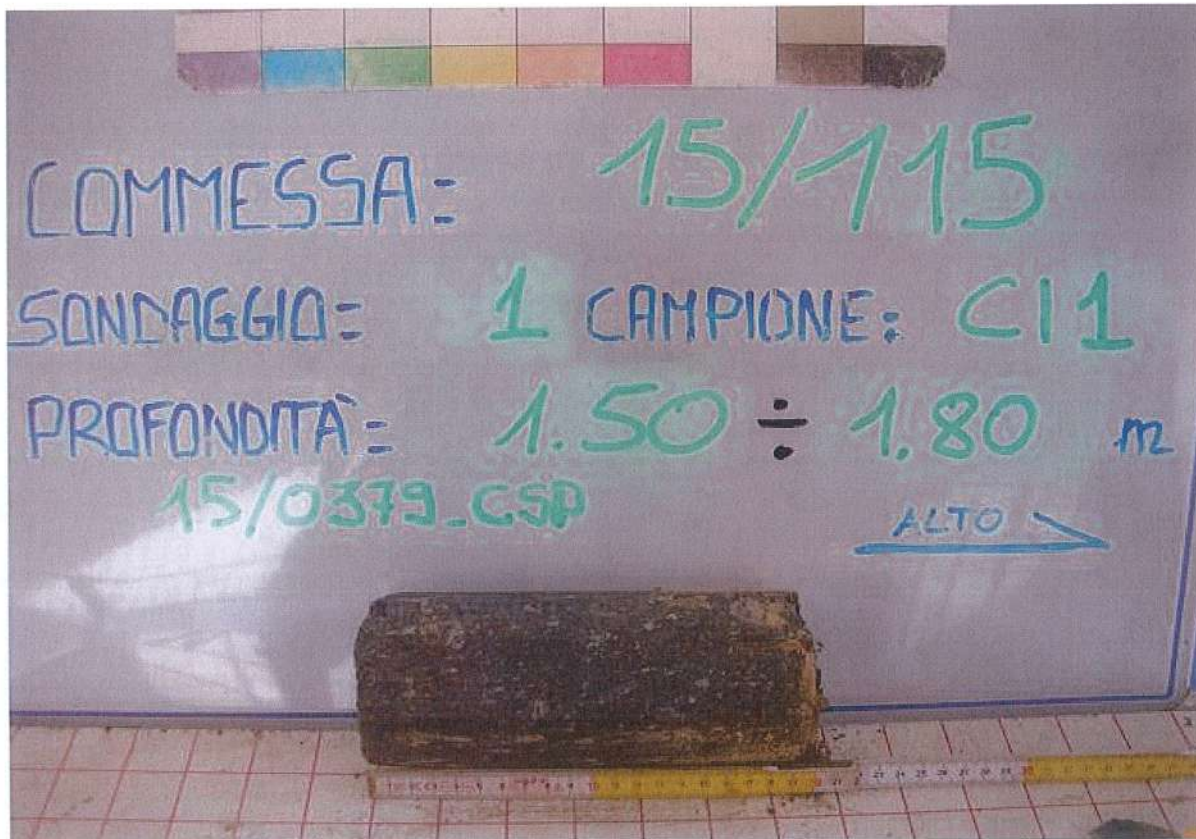 COMMESSA: 15/115
SONDAGGIO: 1 CAMPIONE: CI1
PROFONDITÀ: 1.50 ÷ 1.80 m
15/0379_CSP
ALTO